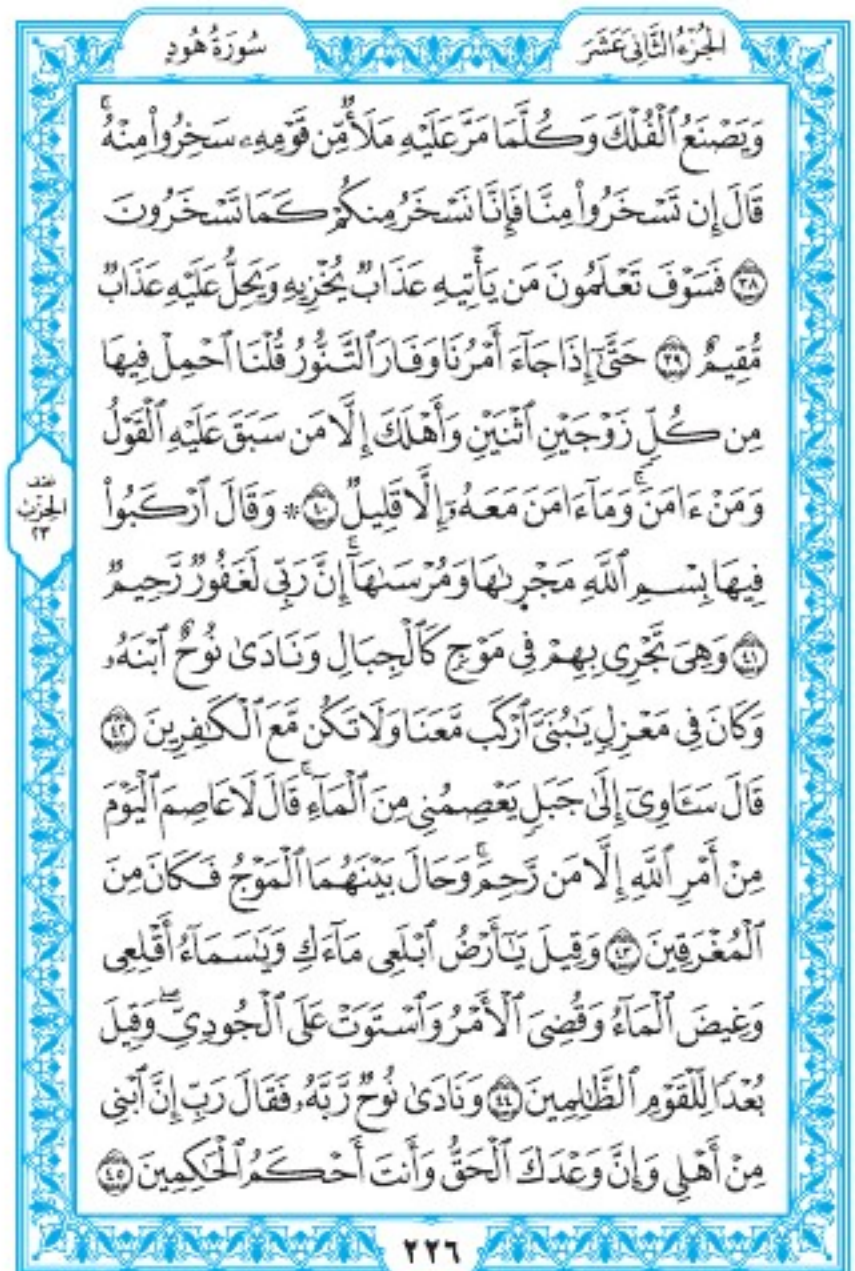 الجُزْءُ الثَّانِيَ عَشَرَ
سُورَةُ هُودٍ
وَيَصْنَعُ ٱلْفُلْكَ وَكُلَّمَا مَرَّ عَلَيْهِ مَلَأٌ مِّن قَوْمِهِۦ سَخِرُوا۟ مِنْهُ ۚ
قَالَ إِن تَسْخَرُوا۟ مِنَّا فَإِنَّا نَسْخَرُ مِنكُمْ كَمَا تَسْخَرُونَ
٣٨ فَسَوْفَ تَعْلَمُونَ مَن يَأْتِيهِ عَذَابٌ يُخْزِيهِ وَيَحِلُّ عَلَيْهِ عَذَابٌ
مُّقِيمٌ ٣٩ حَتَّىٰٓ إِذَا جَآءَ أَمْرُنَا وَفَارَ ٱلتَّنُّورُ قُلْنَا ٱحْمِلْ فِيهَا
مِن كُلٍّ زَوْجَيْنِ ٱثْنَيْنِ وَأَهْلَكَ إِلَّا مَن سَبَقَ عَلَيْهِ ٱلْقَوْلُ
وَمَنْ ءَامَنَ ۚ وَمَآ ءَامَنَ مَعَهُۥٓ إِلَّا قَلِيلٌ ٤٠ ۞ وَقَالَ ٱرْكَبُوا۟
فِيهَا بِسْمِ ٱللَّهِ مَجْر۪ىٰهَا وَمُرْسَىٰهَآ ۚ إِنَّ رَبِّى لَغَفُورٌ رَّحِيمٌ
٤١ وَهِىَ تَجْرِى بِهِمْ فِى مَوْجٍ كَٱلْجِبَالِ وَنَادَىٰ نُوحٌ ٱبْنَهُۥ
وَكَانَ فِى مَعْزِلٍ يَـٰبُنَىَّ ٱرْكَب مَّعَنَا وَلَا تَكُن مَّعَ ٱلْكَـٰفِرِينَ ٤٢
قَالَ سَـَٔاوِىٓ إِلَىٰ جَبَلٍ يَعْصِمُنِى مِنَ ٱلْمَآءِ ۚ قَالَ لَا عَاصِمَ ٱلْيَوْمَ
مِنْ أَمْرِ ٱللَّهِ إِلَّا مَن رَّحِمَ ۚ وَحَالَ بَيْنَهُمَا ٱلْمَوْجُ فَكَانَ مِنَ
ٱلْمُغْرَقِينَ ٤٣ وَقِيلَ يَـٰٓأَرْضُ ٱبْلَعِى مَآءَكِ وَيَـٰسَمَآءُ أَقْلِعِى
وَغِيضَ ٱلْمَآءُ وَقُضِىَ ٱلْأَمْرُ وَٱسْتَوَتْ عَلَى ٱلْجُودِىِّ ۖ وَقِيلَ
بُعْدًا لِّلْقَوْمِ ٱلظَّـٰلِمِينَ ٤٤ وَنَادَىٰ نُوحٌ رَّبَّهُۥ فَقَالَ رَبِّ إِنَّ ٱبْنِى
مِنْ أَهْلِى وَإِنَّ وَعْدَكَ ٱلْحَقُّ وَأَنتَ أَحْكَمُ ٱلْحَـٰكِمِينَ ٤٥
نصف
الحزب
٢٣
٢٢٦